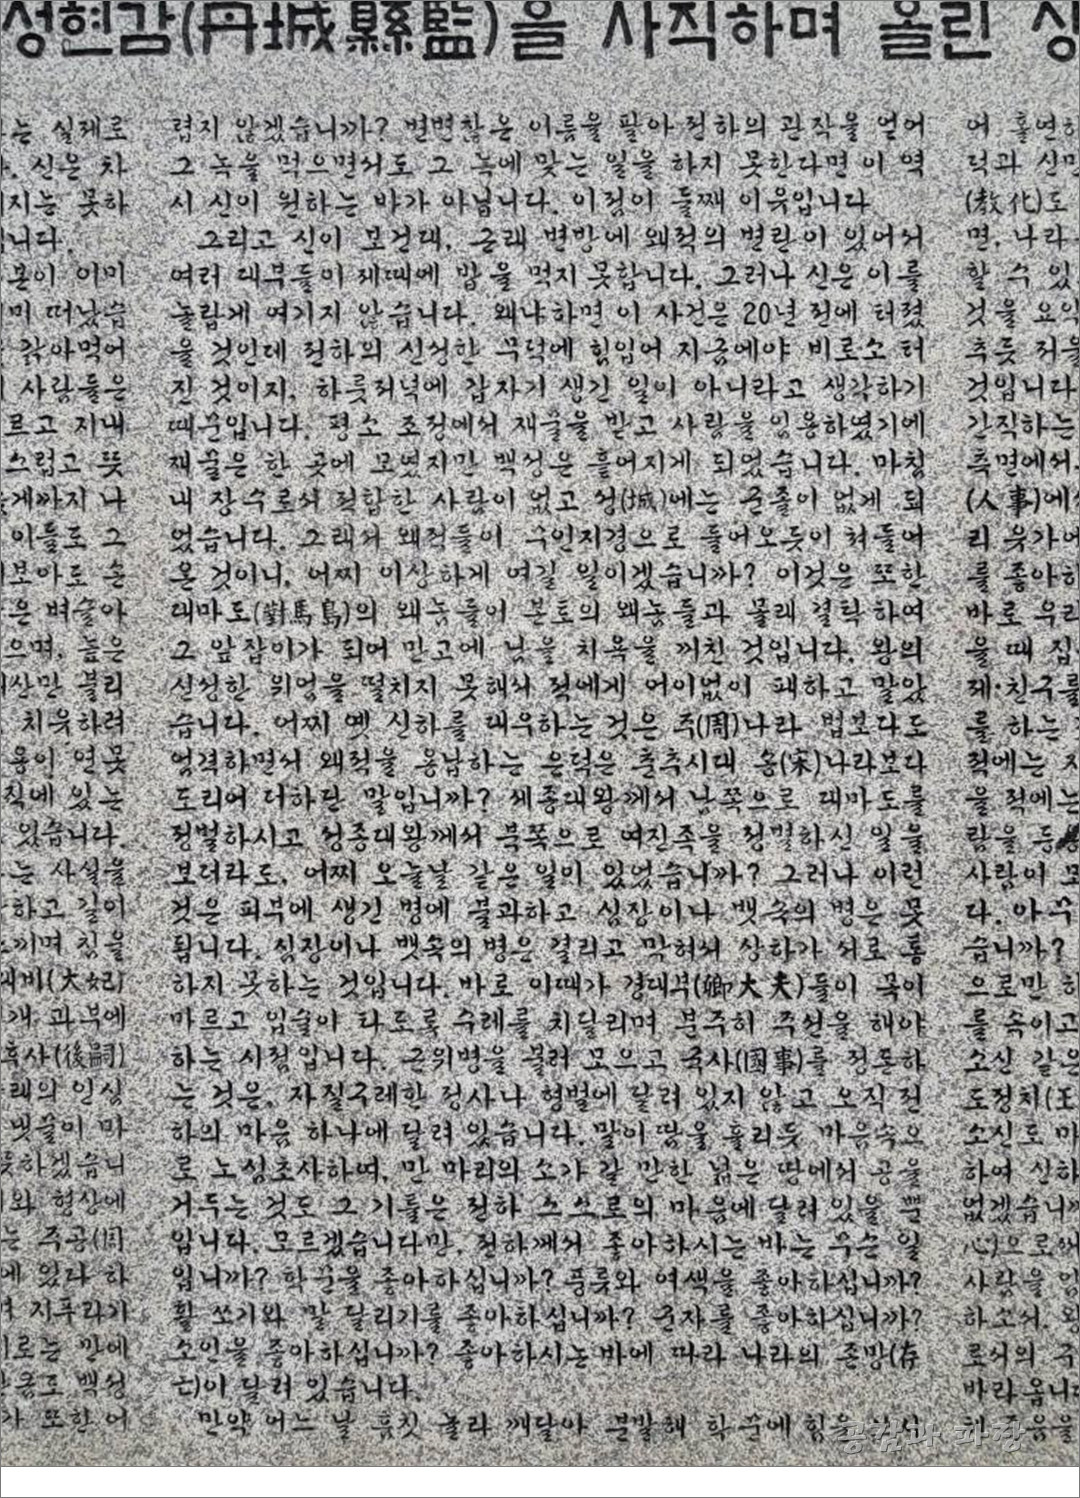 성현감(丹城縣監)을 사직하며 올린 상
는 실제로
신은 차
지는 못하
니다.
본이 이미
미 떠났습
갉아먹어
사람들은
르고 지내
스럽고 뜻
게까지 나
이들도 그
보아도 손
은 벼슬아
으며, 높은
산만 불리
치유하려
용이 연못
직에 있는
있습니다.
는 사실을
하고 길이
끼며 침을
대비(大妃)
개 과부에
후사(後嗣)
래의 인심
냇물이 마
못하겠습니
와 형상에
는 주공(周
에 있다 하
지푸라기
로는 만에
금도 백성
가 또한 어
렵지 않겠습니까? 변변찮은 이름을 팔아 전하의 관작을 얻어
그 녹을 먹으면서도 그 녹에 맞는 일을 하지 못한다면 이 역
시 신이 원하는 바가 아닙니다. 이점이 둘째 이유입니다
그리고 신이 보건대, 근래 변방에 왜적의 변란이 있어서
여러 대부들이 제때에 밥을 먹지 못합니다. 그러나 신은 이를
놀랍게 여기지 않습니다. 왜냐하면 이 사건은 20년 전에 터졌
을 것인데 전하의 신성한 무덕에 힘입어 지금에야 비로소 터
진 것이지, 하룻저녁에 갑자기 생긴 일이 아니라고 생각하기
때문입니다. 평소 조정에서 재물을 받고 사람을 임용하였기에
재물은 한 곳에 모였지만 백성은 흩어지게 되었습니다. 마침
내 장수로서 적합한 사람이 없고 성(城)에는 군졸이 없게 되
었습니다. 그래서 왜적들이 무인지경으로 들어오듯이 쳐들어
온 것이니, 어찌 이상하게 여길 일이겠습니까? 이것은 또한
대마도(對馬島)의 왜놈들이 본토의 왜놈들과 몰래 결탁하여
그 앞잡이가 되어 만고에 남을 치욕을 끼친 것입니다. 왕의
신성한 위엄을 떨치지 못해서 적에게 어이없이 패하고 말았
습니다. 어찌 옛 신하를 대우하는 것은 주(周)나라 법보다도
엄격하면서 왜적을 용납하는 은덕은 춘추시대 송(宋)나라보다
도리어 더하단 말입니까? 세종대왕께서 남쪽으로 대마도를
정벌하시고 성종대왕께서 북쪽으로 여진족을 정벌하신 일을
보더라도, 어찌 오늘날 같은 일이 있었습니까? 그러나 이런
것은 피부에 생긴 병에 불과하고 심장이나 뱃속의 병은 못
됩니다. 심장이나 뱃속의 병은 걸리고 막혀서 상하가 서로 통
하지 못하는 것입니다. 바로 이때가 경대부(卿大夫)들이 목이
마르고 입술이 타도록 수레를 치달리며 분주히 주선을 해야
하는 시점입니다. 근위병을 불러 모으고 국사(國事)를 정돈하
는 것은, 자질구레한 정사나 형벌에 달려 있지 않고 오직 전
하의 마음 하나에 달려 있습니다. 말이 땀을 흘리듯 마음속으
로 노심초사하여, 만 마리의 소가 갈 만한 넓은 땅에서 공을
거두는 것도 그 기틀은 전하 스스로의 마음에 달려 있을 뿐
입니다. 모르겠습니다만, 전하께서 좋아하시는 바는 무슨 일
입니까? 학문을 좋아하십니까? 풍류와 여색을 좋아하십니까?
활 쏘기와 말 달리기를 좋아하십니까? 군자를 좋아하십니까?
소인을 좋아하십니까? 좋아하시는 바에 따라 나라의 존망(存
亡)이 달려 있습니다.
만약 어느 날 흠칫 놀라 깨달아 분발해 학문에 힘을
어 홀연히
덕과 신민
(敎化)도
면, 나라
할 수 있
것을 요약
추듯 저울
것입니다
간직하는
측면에서
(人事)에서
리 유가에
를 좋아하
바로 우리
을 때 집
제·친구를
를 하는
적에는 지
을 적에는
람을 등용
사람이 모
다. 아무
습니까?
으로만 하
를 속이고
소산 같은
도정치(王
소신도 마
하여 신하
없겠습니까
心)으로 해
사람을 임
하소서. 왕
로서의 주
바라옵니다
해 음을
공감과 파장